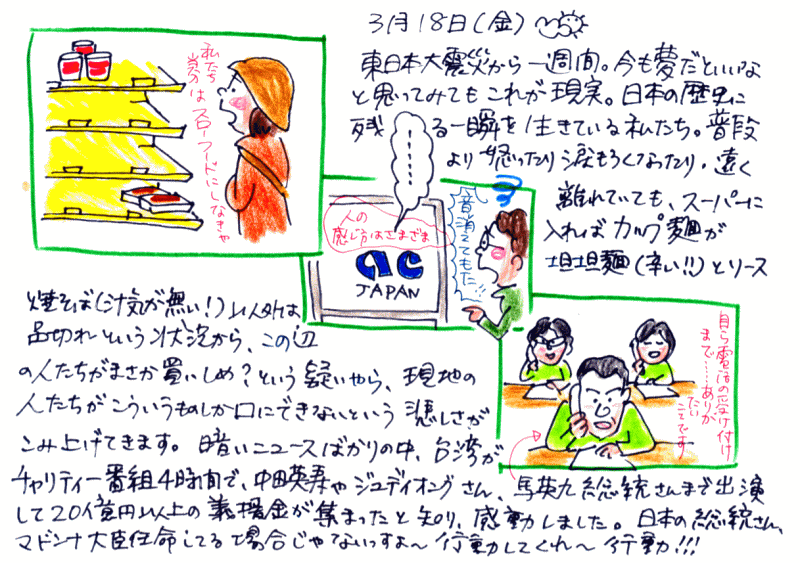 3月18日(金)
東日本大震災から一週間。今も夢だといいな
と思ってみてもこれが現実。日本の歴史に
残る一瞬を生きている私たち。普段
より怒ったり涙もろくなったり。遠く
離れていても、スーパーに
入ればカップ麺が
坦坦麺(辛い!!)とソース
焼そば(汁気が無い!)以外は
品切れという状況から、この辺
の人たちがまさか買いしめ?という疑いやら、現地の
人たちがこういうものしか口にできないという悲しさが
こみ上げてきます。暗いニュースばかりの中、台湾が
チャリティー番組4時間で、中田英寿やジュディオングさん、馬英九総統さんまで出演
して20億円以上の義援金が集まったと知り、感動しました。日本の総統さん、
マドンナ大臣任命してる場合じゃないっすよ〜行動してくれ〜行動!!!
私たち
はスローフードにしなきゃ
人の
感じ方はさまざま
AC
JAPAN
音消えてもた!!
自ら電話の受け付け
まで……ありが
たい
ことです